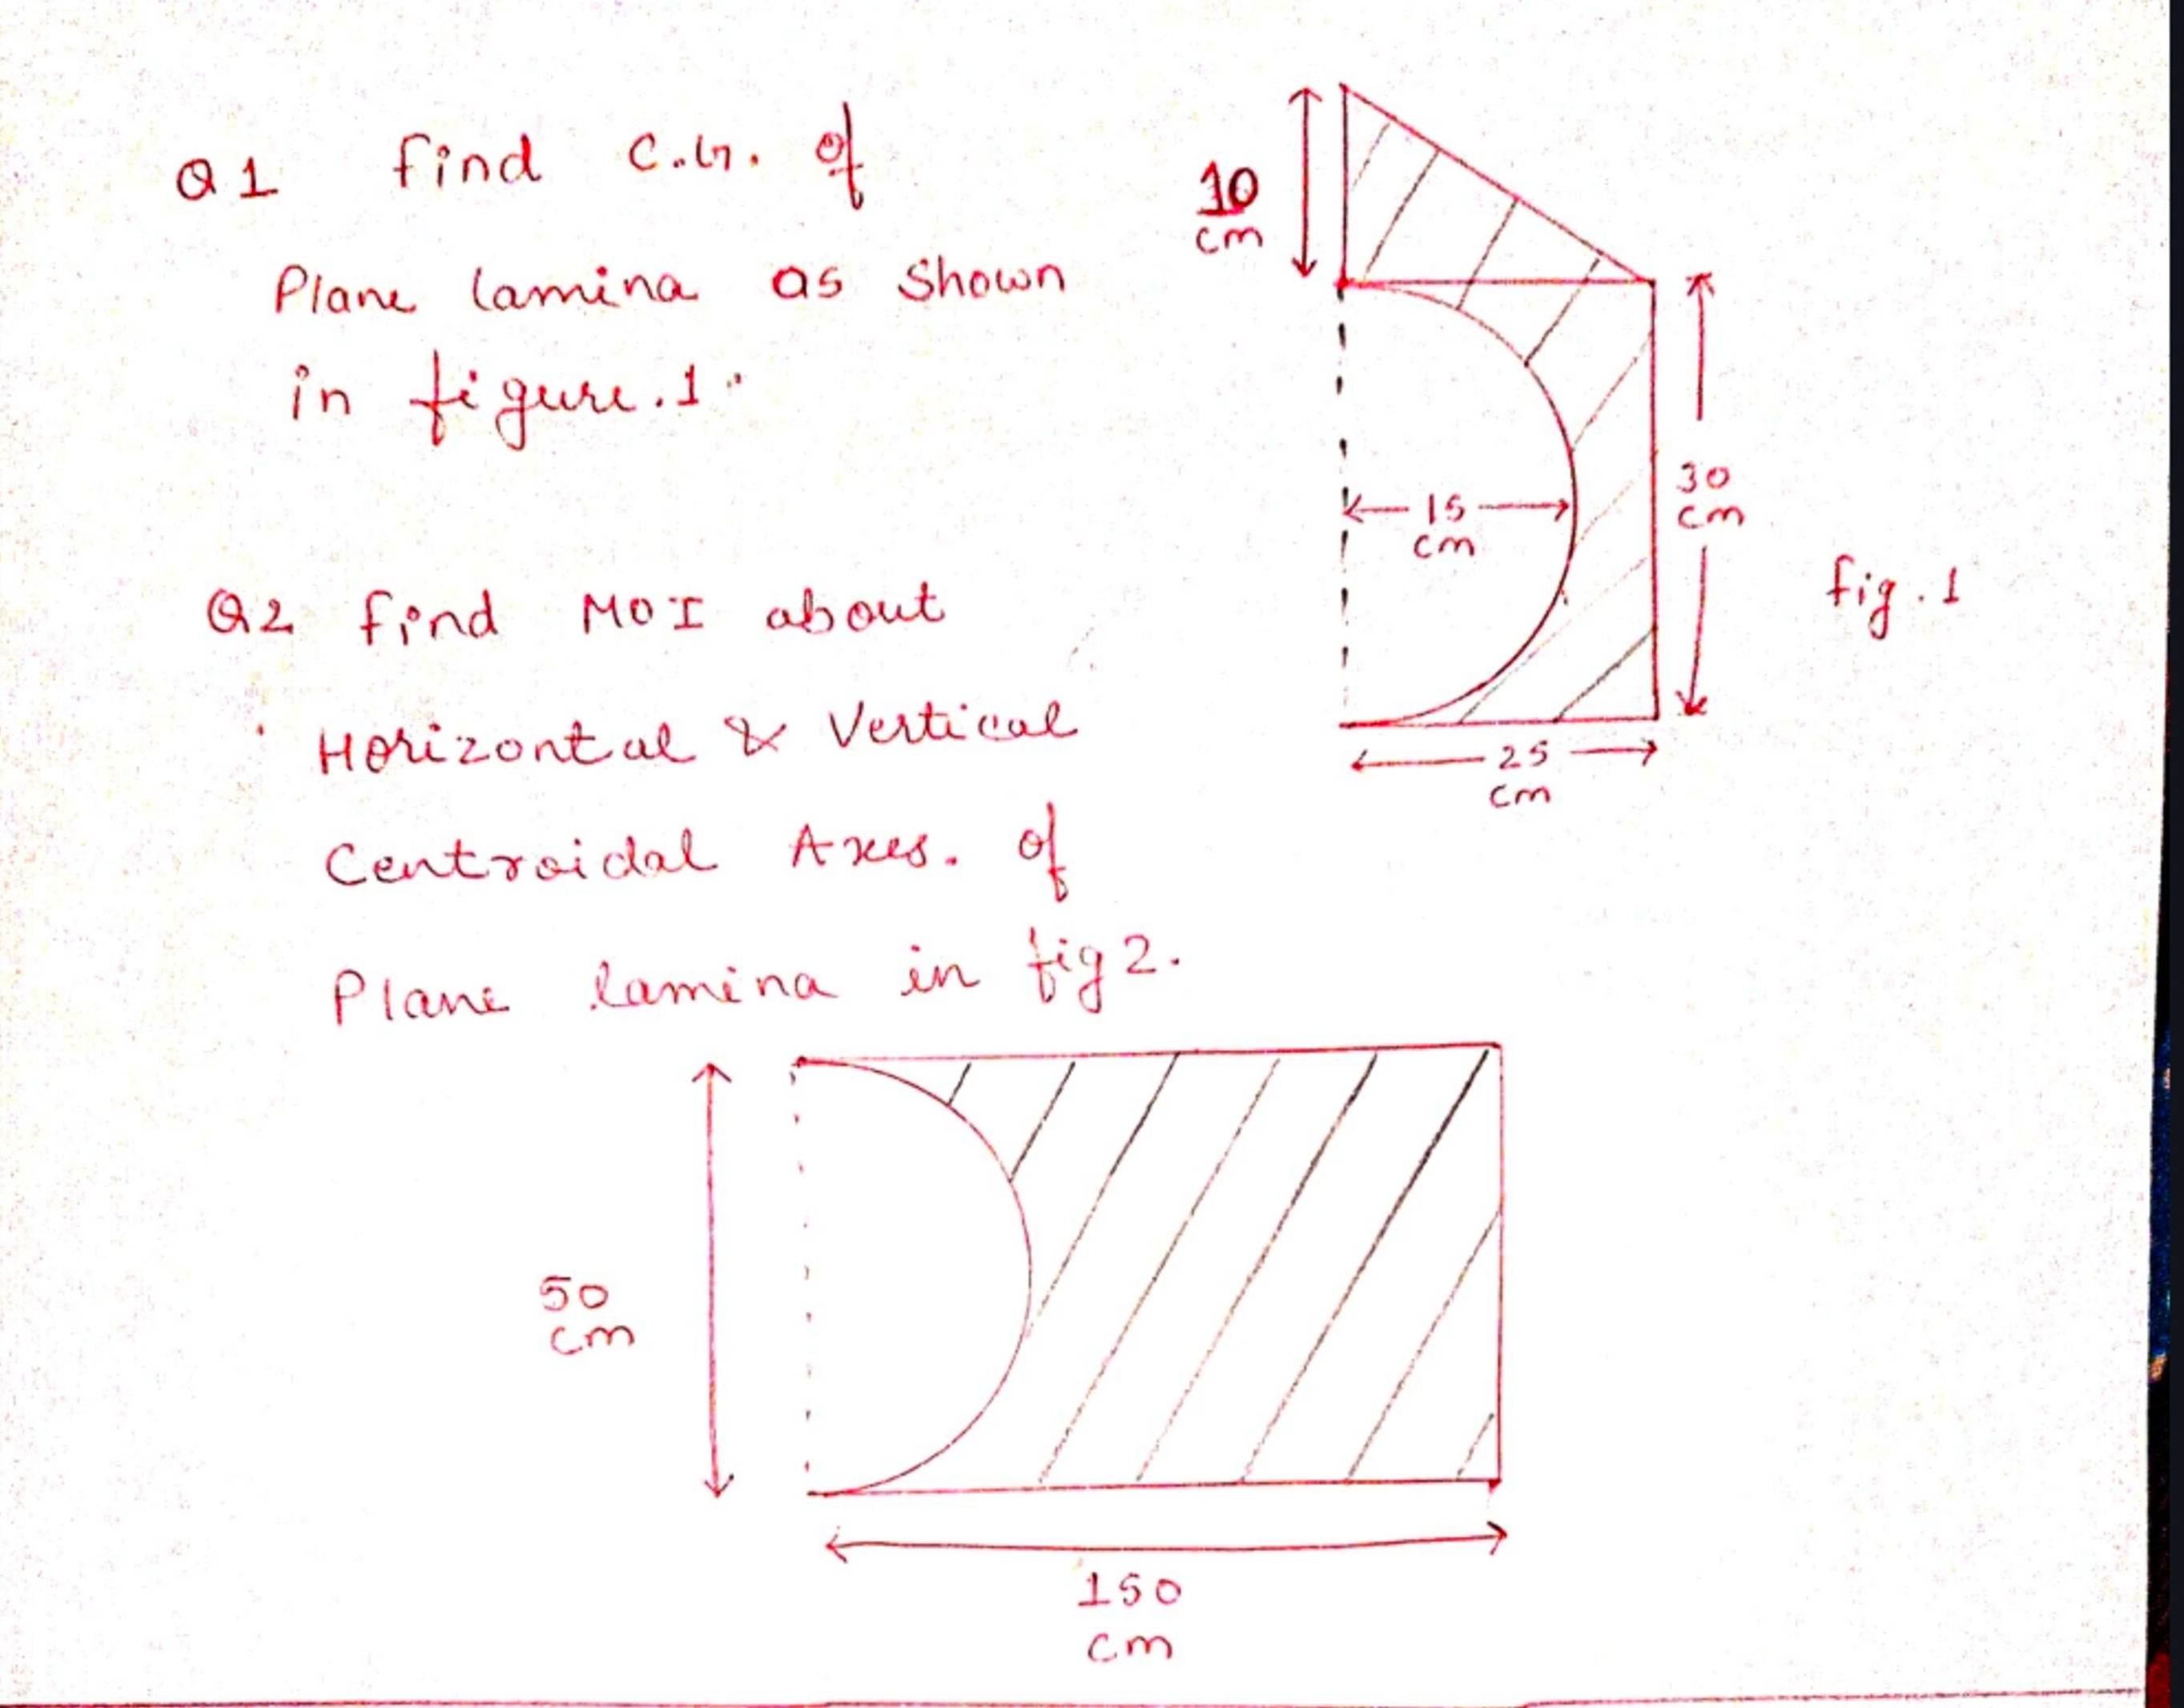 Q1 find C.G. of
Plane lamina as shown
in figure.1.
10
cm
15
cm
30
cm
25
cm
fig.1
Q2 find MOI about
Horizontal & Vertical
Centroidal Axes. of
Plane lamina in fig 2.
50
cm
150
cm